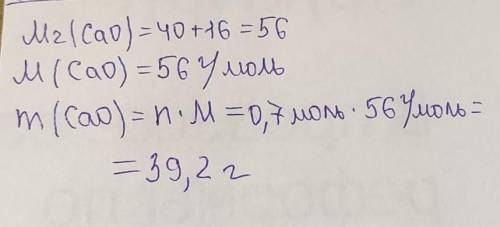 Mr(CaO)=40+16=56
M(CaO)=56 г/моль
m(CaO)=n·M=0,7моль·56г/моль=
=39,2 г